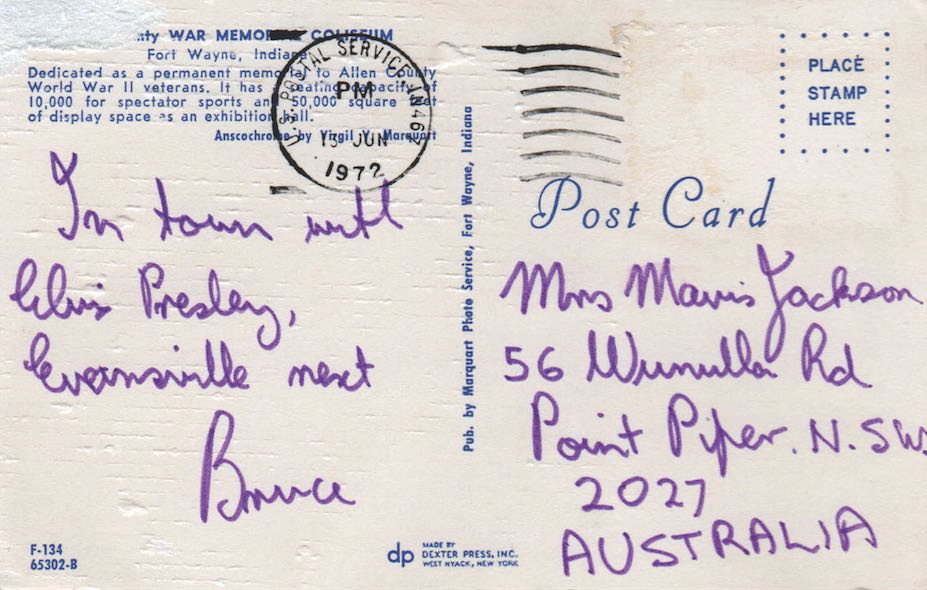 WAR MEMORIAL COLISEUM
Fort Wayne, Indiana
Dedicated as a permanent memorial to Allen County
World War II veterans. It has seating capacity of
10,000 for spectator sports and 50,000 square feet
of display space as an exhibition hall.
Anscochrome by Virgil V. Marquart
U.S. POSTAL SERVICE, IN 467
PM
13 JUN
1972
In town with
Elvis Presley,
Evansville next
Bruce
F-134
65302-B
Pub. by Marquart Photo Service, Fort Wayne, Indiana
dp
MADE BY
DEXTER PRESS, INC.
WEST NYACK, NEW YORK
PLACE
STAMP
HERE
Post Card
Mrs Mavis Jackson
56 Wunulla Rd
Point Piper. N.SW.
2027
AUSTRALIA